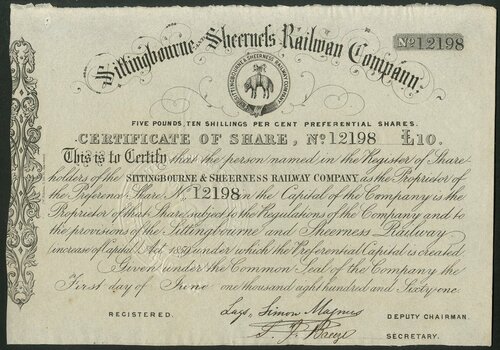 Sittingbourne and Sheerness Railway Company.
No 12198
SITTINGBOURNE & SHEERNESS RAILWAY COMPANY
FIVE POUNDS, TEN SHILLINGS PER CENT PREFERENTIAL SHARES.
CERTIFICATE OF SHARE, No 12198 £10.
This is to Certify that the person named in the Register of Share
holders of the SITTINGBOURNE & SHEERNESS RAILWAY COMPANY, as the Proprietor of
the Preference Share No. 12198 in the Capital of the Company is the
Proprietor of that Share, subject to the Regulations of the Company and to
the provisions of the Sittingbourne and Sheerness Railway
(increase of Capital) Act, 1859, under which the Preferential Capital is created.
Given under the Common Seal of the Company the
First day of June one thousand eight hundred and Sixty one.
REGISTERED.
Lazs. Simon Magnus DEPUTY CHAIRMAN.
SECRETARY.